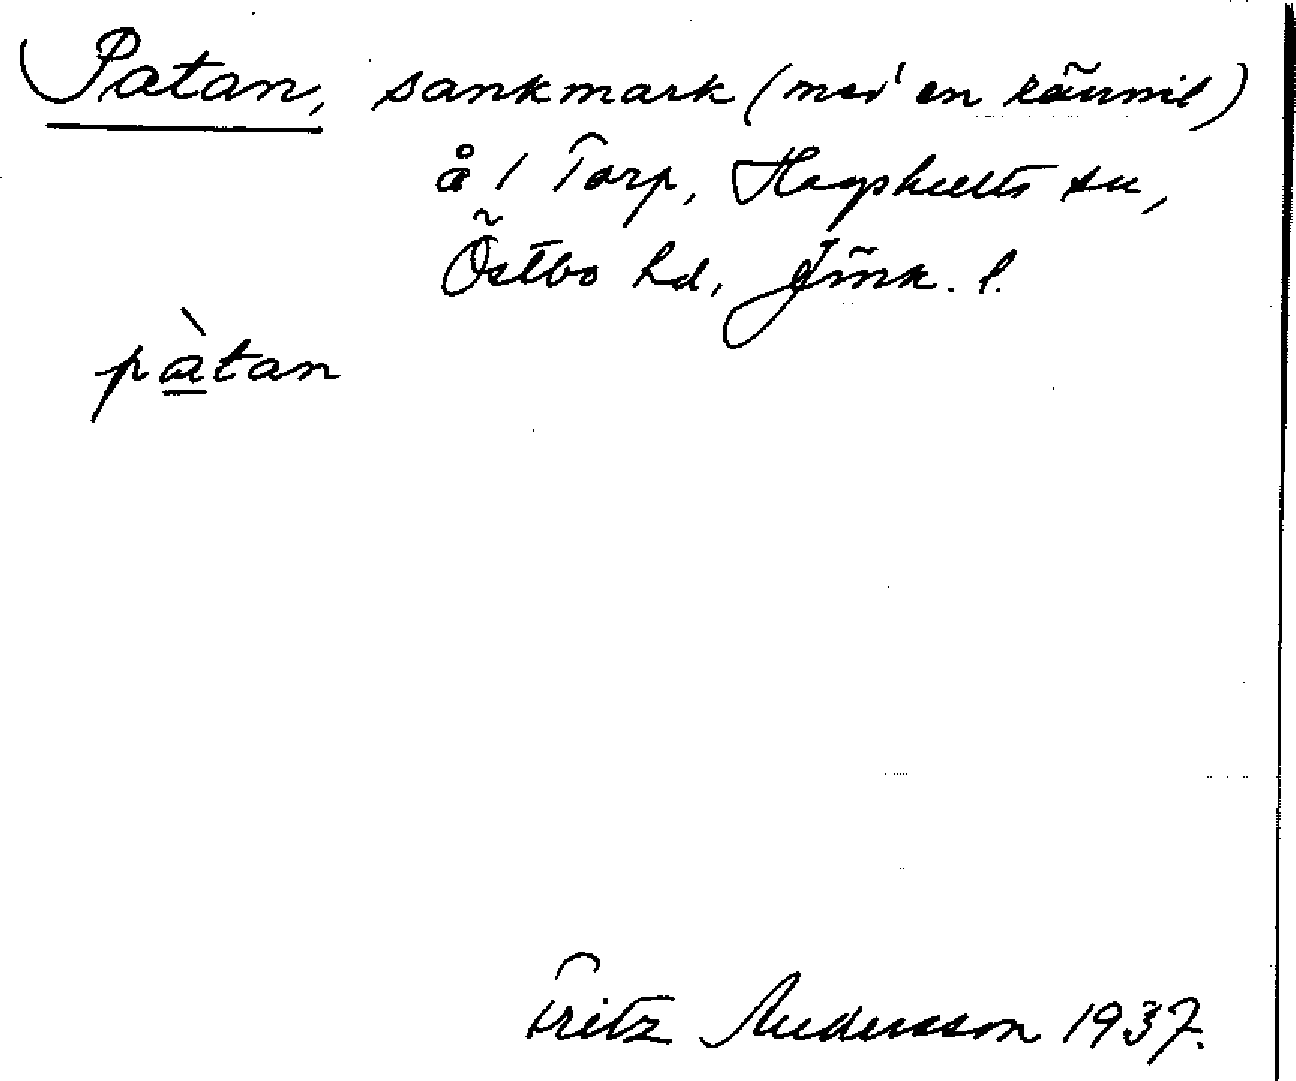 Patan, sankmark (med en rännil)
å / Torp, Hagshults sn,
Östbo hd, Jönk. l.
pàtan
Fritz Andersson 1937.